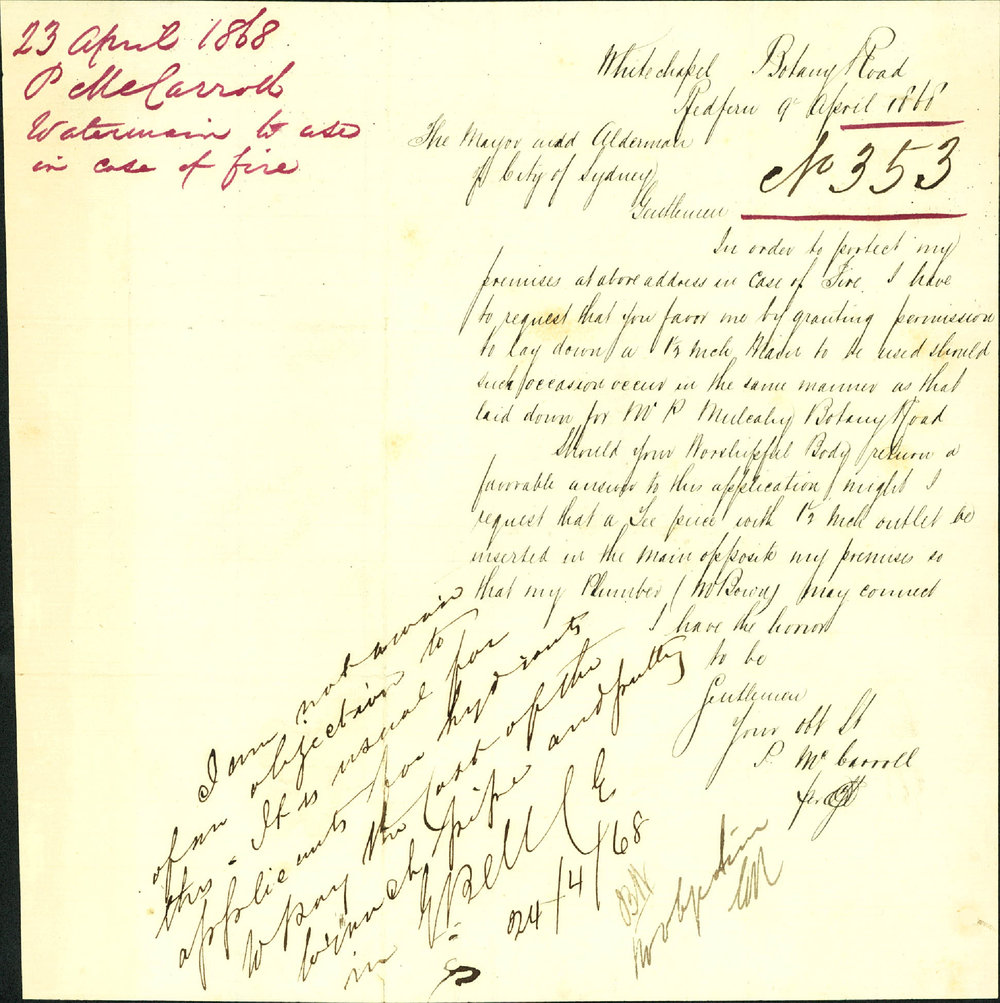 23 April 1868
P McCarroll
Watermain to use
in case of fire
Whitechapel Botany Road
Redfern 9th April 1868
The Mayor and Alderman
of City of Sydney
No 353
Gentlemen
In order to protect my
premises at above address in case of Fire, I have
to request that you favor me by granting permission
to lay down a 1½ inch Main to be used should
such occasion occur in the same manner as that
laid down for Mr P Mulcahy Botany Road
Should your Worshipful Body return a
favorable answer to this application, might I
request that a Tee piece with 1½ inch outlet be
inserted in the Main opposite my premises so
that my Plumber (Mr Bown) may connect
I have the honor
to be
Gentlemen
Your obt St
P. McCarroll
pr
I am not aware
of an objection to
this - It is usual for
applicants for hydrants
to pay the cost of the
branch pipe and putting
in
E Bell C E
24/4/68
No objection